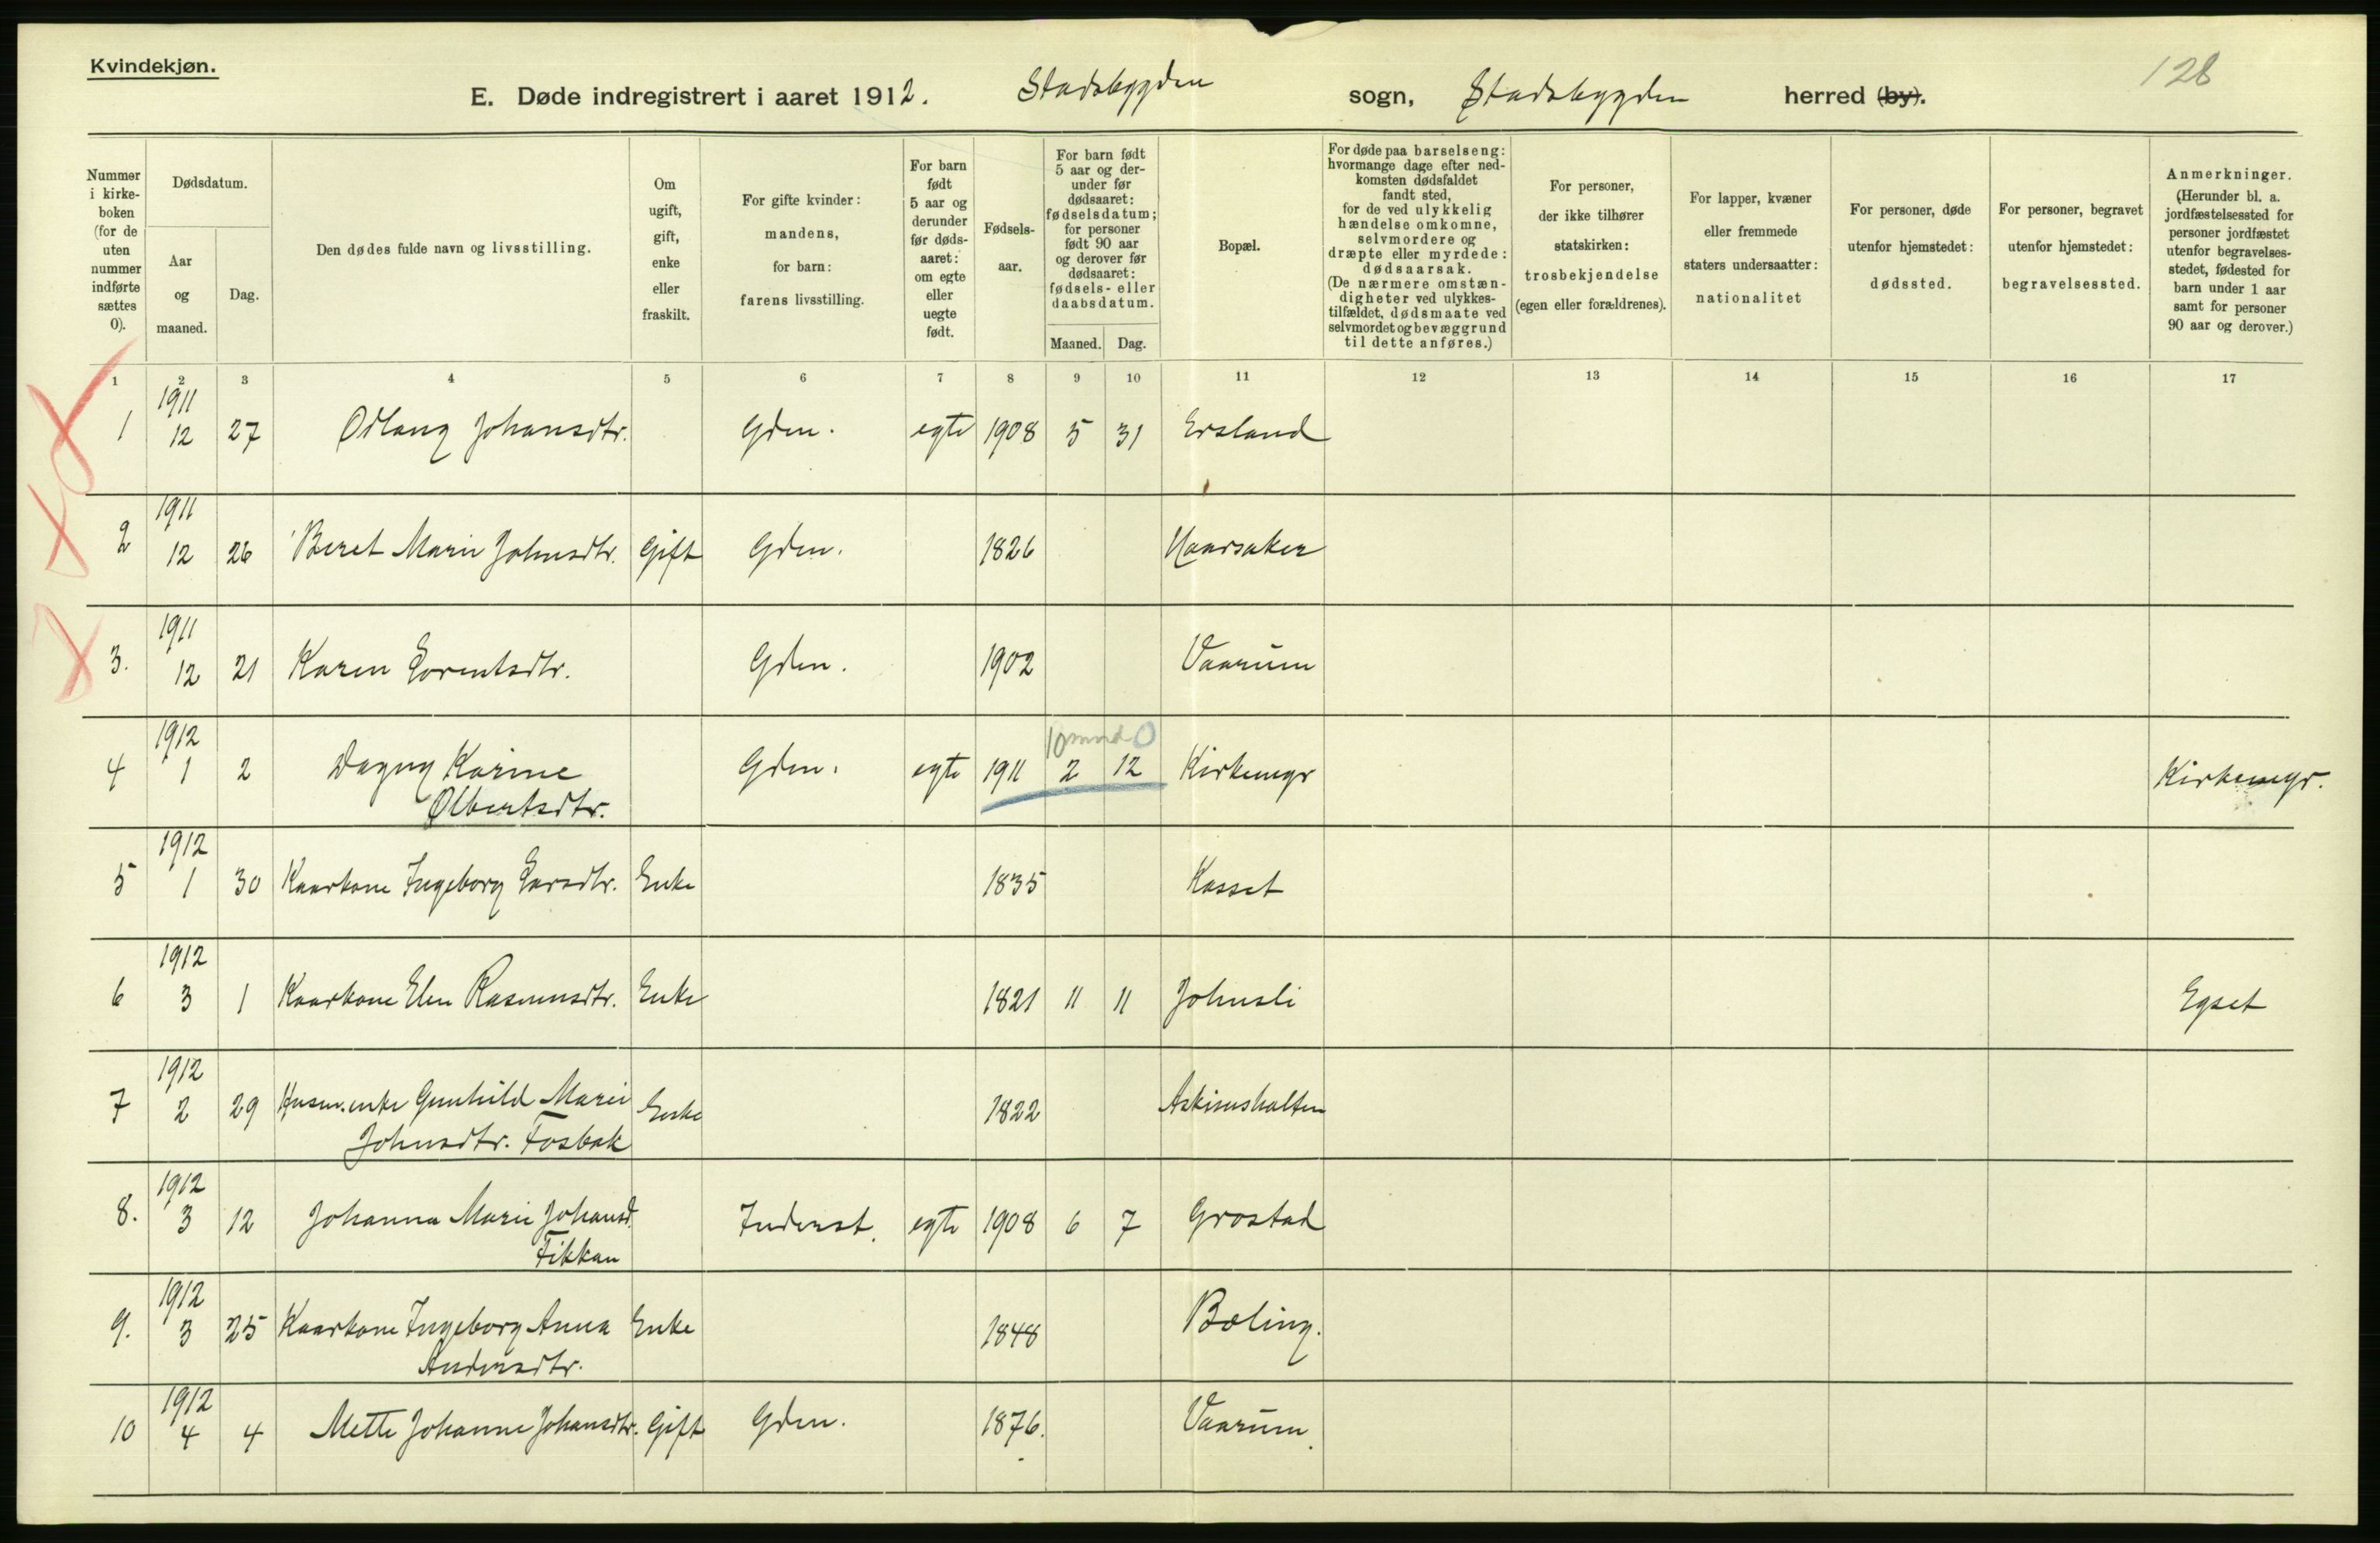 Kvindekjøn.
128
E. Døde indregistrert i aaret 1912. Stadsbygden sogn, Stadsbygden herred (by).
Nummer i kirke-boken (for de uten nummer indførte sættes 0).
Dødsdatum.
Aar og maaned.
Dag.
Den dødes fulde navn og livsstilling.
Om ugift, gift, enke eller fraskilt.
For gifte kvinder: mandens, for barn: farens livsstilling.
For barn født 5 aar og derunder før døds-aaret: om egte eller uegte født.
Fødsels-aar.
For barn født 5 aar og der-under før dødsaaret: fødselsdatum; for personer født 90 aar og derover før dødsaaret: fødsels- eller daabsdatum.
Maaned. Dag.
Bopæl.
For døde paa barselseng: hvormange dage efter ned-komsten dødsfaldet fandt sted, for de ved ulykkelig hændelse omkomne, selvmordere og dræpte eller myrdede: dødsaarsak. (De nærmere omstæn-digheter ved ulykkes-tilfældet, dødsmaate ved selvmordet og bevæggrund til dette anføres.)
For personer, der ikke tilhører statskirken: trosbekjendelse (egen eller forældrenes).
For lapper, kvæner eller fremmede staters undersaatter: nationalitet
For personer, døde utenfor hjemstedet: dødssted.
For personer, begravet utenfor hjemstedet: begravelsessted.
Anmerkninger. (Herunder bl. a. jordfæstelsessted for personer jordfæstet utenfor begravelses-stedet, fødested for barn under 1 aar samt for personer 90 aar og derover.)
1 2 3 4 5 6 7 8 9 10 11 12 13 14 15 16 17
1911
1 12 27 Odlaug Johansdtr. Gdm. egte 1908 5 31 Ersland
1911
2 12 26 Beret Marie Johnsdtr. Gift Gdm. 1826 Haarsaker
1911
3. 12 21 Karen Lorentsdtr. Gdm. 1902 Vaarum
1912 10 mnd 0
4 1 2 Dagny Karine Gdm. egte 1911 2 12 Kirkemgr Kirkemgr.
Olbertsdtr.
1912
5 1 30 Kaarkone Ingeborg Larsdtr. Enke 1835 Kasset
1912
6 3 1 Kaarkone Elen Rasmusdtr. Enke 1821 11 11 Johnsli Egset
1912
7 2 29 Husm.enke Gunhild Marie Enke 1822 Askimshalten
Johnsdtr. Fosbak
1912
8. 3 12 Johanna Marie Johansd. Inderst. egte 1908 6 7 Grostad
Fikkan
1912
9. 3 25 Kaarkone Ingeborg Anna Enke 1848 Bøling.
Andersdtr.
1912
10 4 4 Mette Johanne Johansdtr. Gift Gdm. 1876. Vaarum.